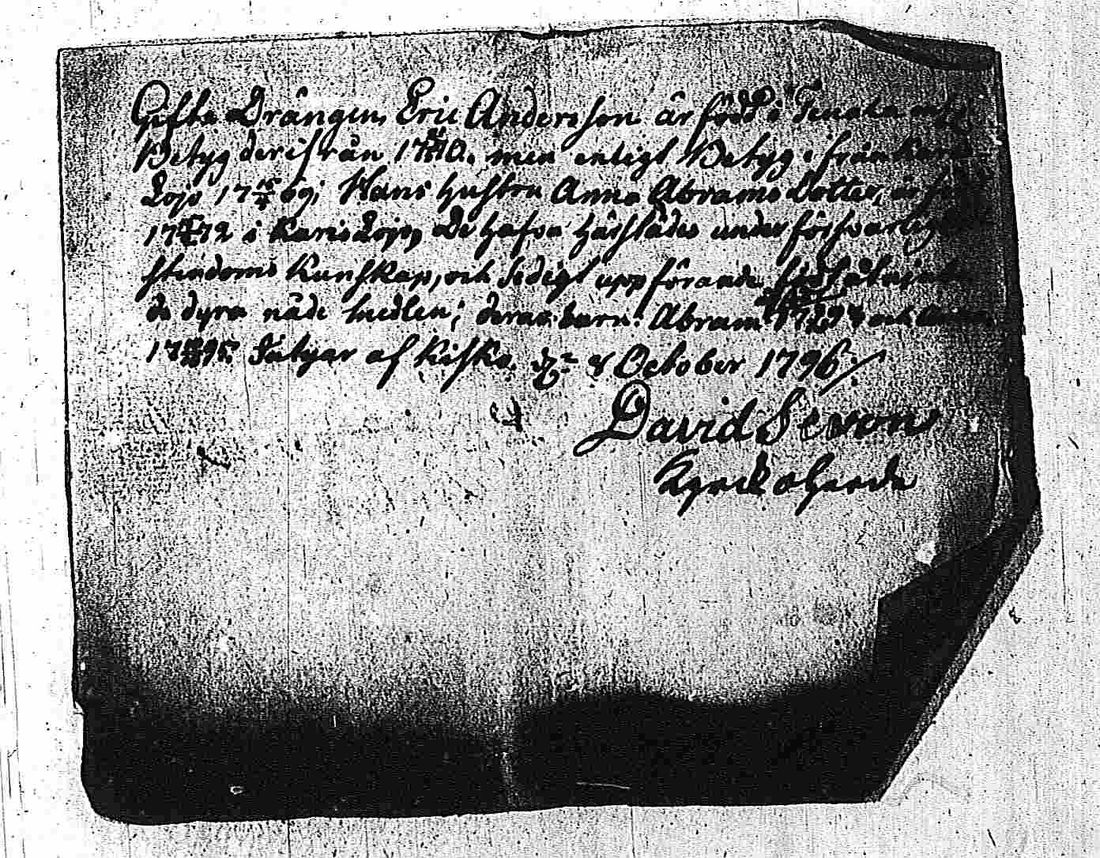 Gifta Drängen Eric Andersson är född i Tenala
Betyg derifrån 17 70. men enligt Betyg ifrån Karis
Lojo 17 69; Hans hustru Anna Abrams Dotter, är född
17 72 i Karis Lojo, De hafva härstädes under försvarlig
stendoms Kunskap, och sedigt uppförande
de dyra nåde medlen; deras barn: Abram 179 och
17 95. Intygar af Kisko. d. 8 October 1796
David Sevon
Kyrckoherde